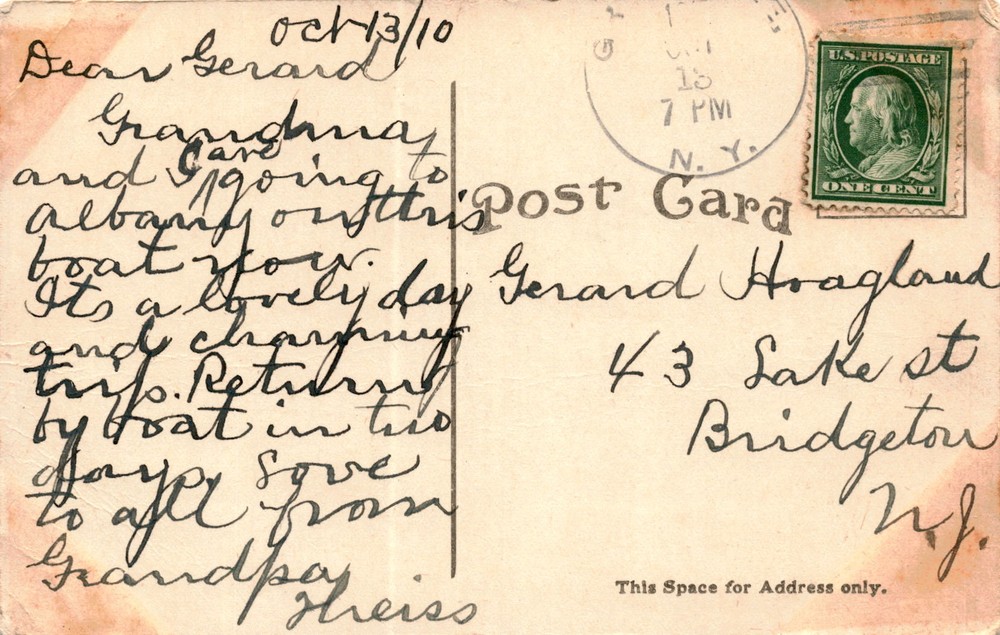 Oct 13/10
Dear Gerard
Grandma
and I are going to
albany on this
boat now.
Its a lovely day
and charming
trip. Return
by boat in two
days. Love
to all from
Grandpa
Theiss
OCT
13
7 PM
N. Y.
U.S. POSTAGE
ONE CENT
Post Card
Gerard Hoagland
43 Lake st
Bridgeton
N.J.
This Space for Address only.